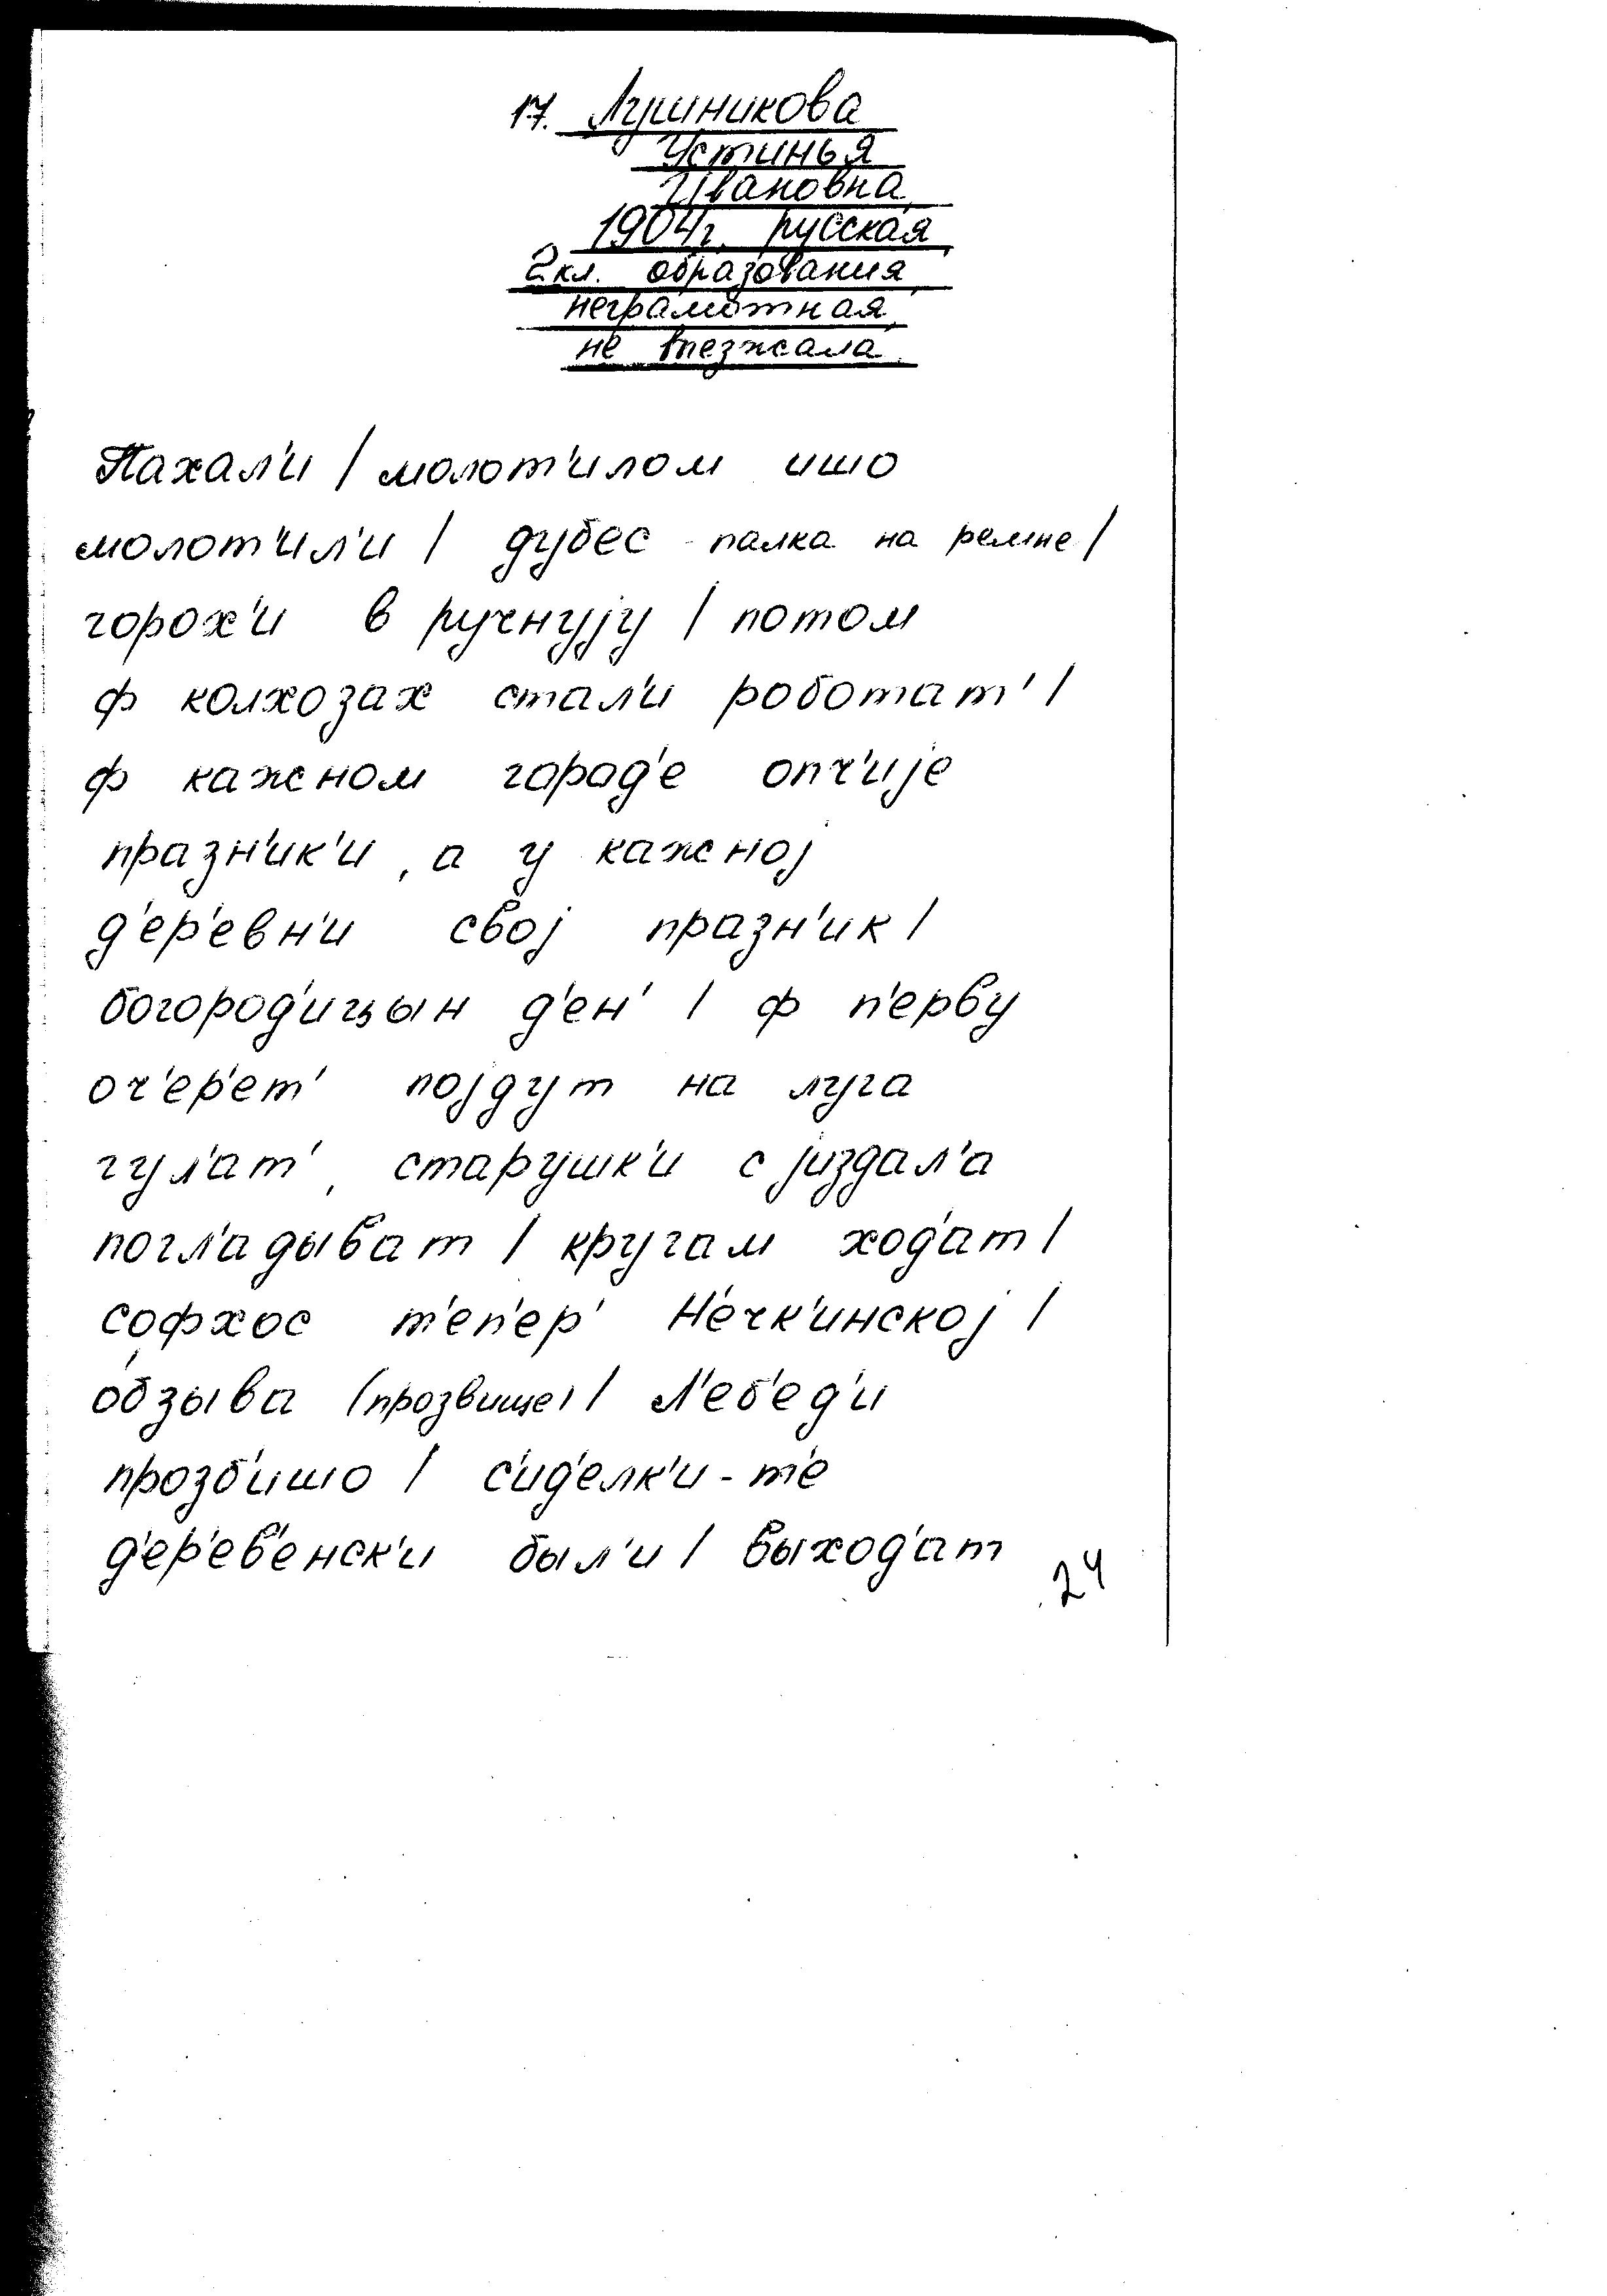 17. Лушникова
Устинья
Ивановна
1904г. русская
2 кл. образования
неграмотная,
не
Пахал'и / молот'илом ишо
молот'ил'и / дубес - палка на ремне /
горох'и в ручнуjу / потом
ф колхозах стал'и роботат' /
ф кажном город'е опч'иjе
празн'ик'и, а у кажноj
д'ер'евн'и своj празн'ик /
богород'ицын д'ен' / ф п'ерву
оч'ер'ет' поjдут на луга
гул'ат', старушк'и с jиздал'а
погл'адыват / кругам ход'ат /
софхос т'еп'ер' Н'ечк'инскоj /
о́бзыва (прозвище) / Л'еб'ед'и
прозб'ишо / с'ид'елк'и - т'е
д'ер'ев'енск'и был'и / выход'ат
24